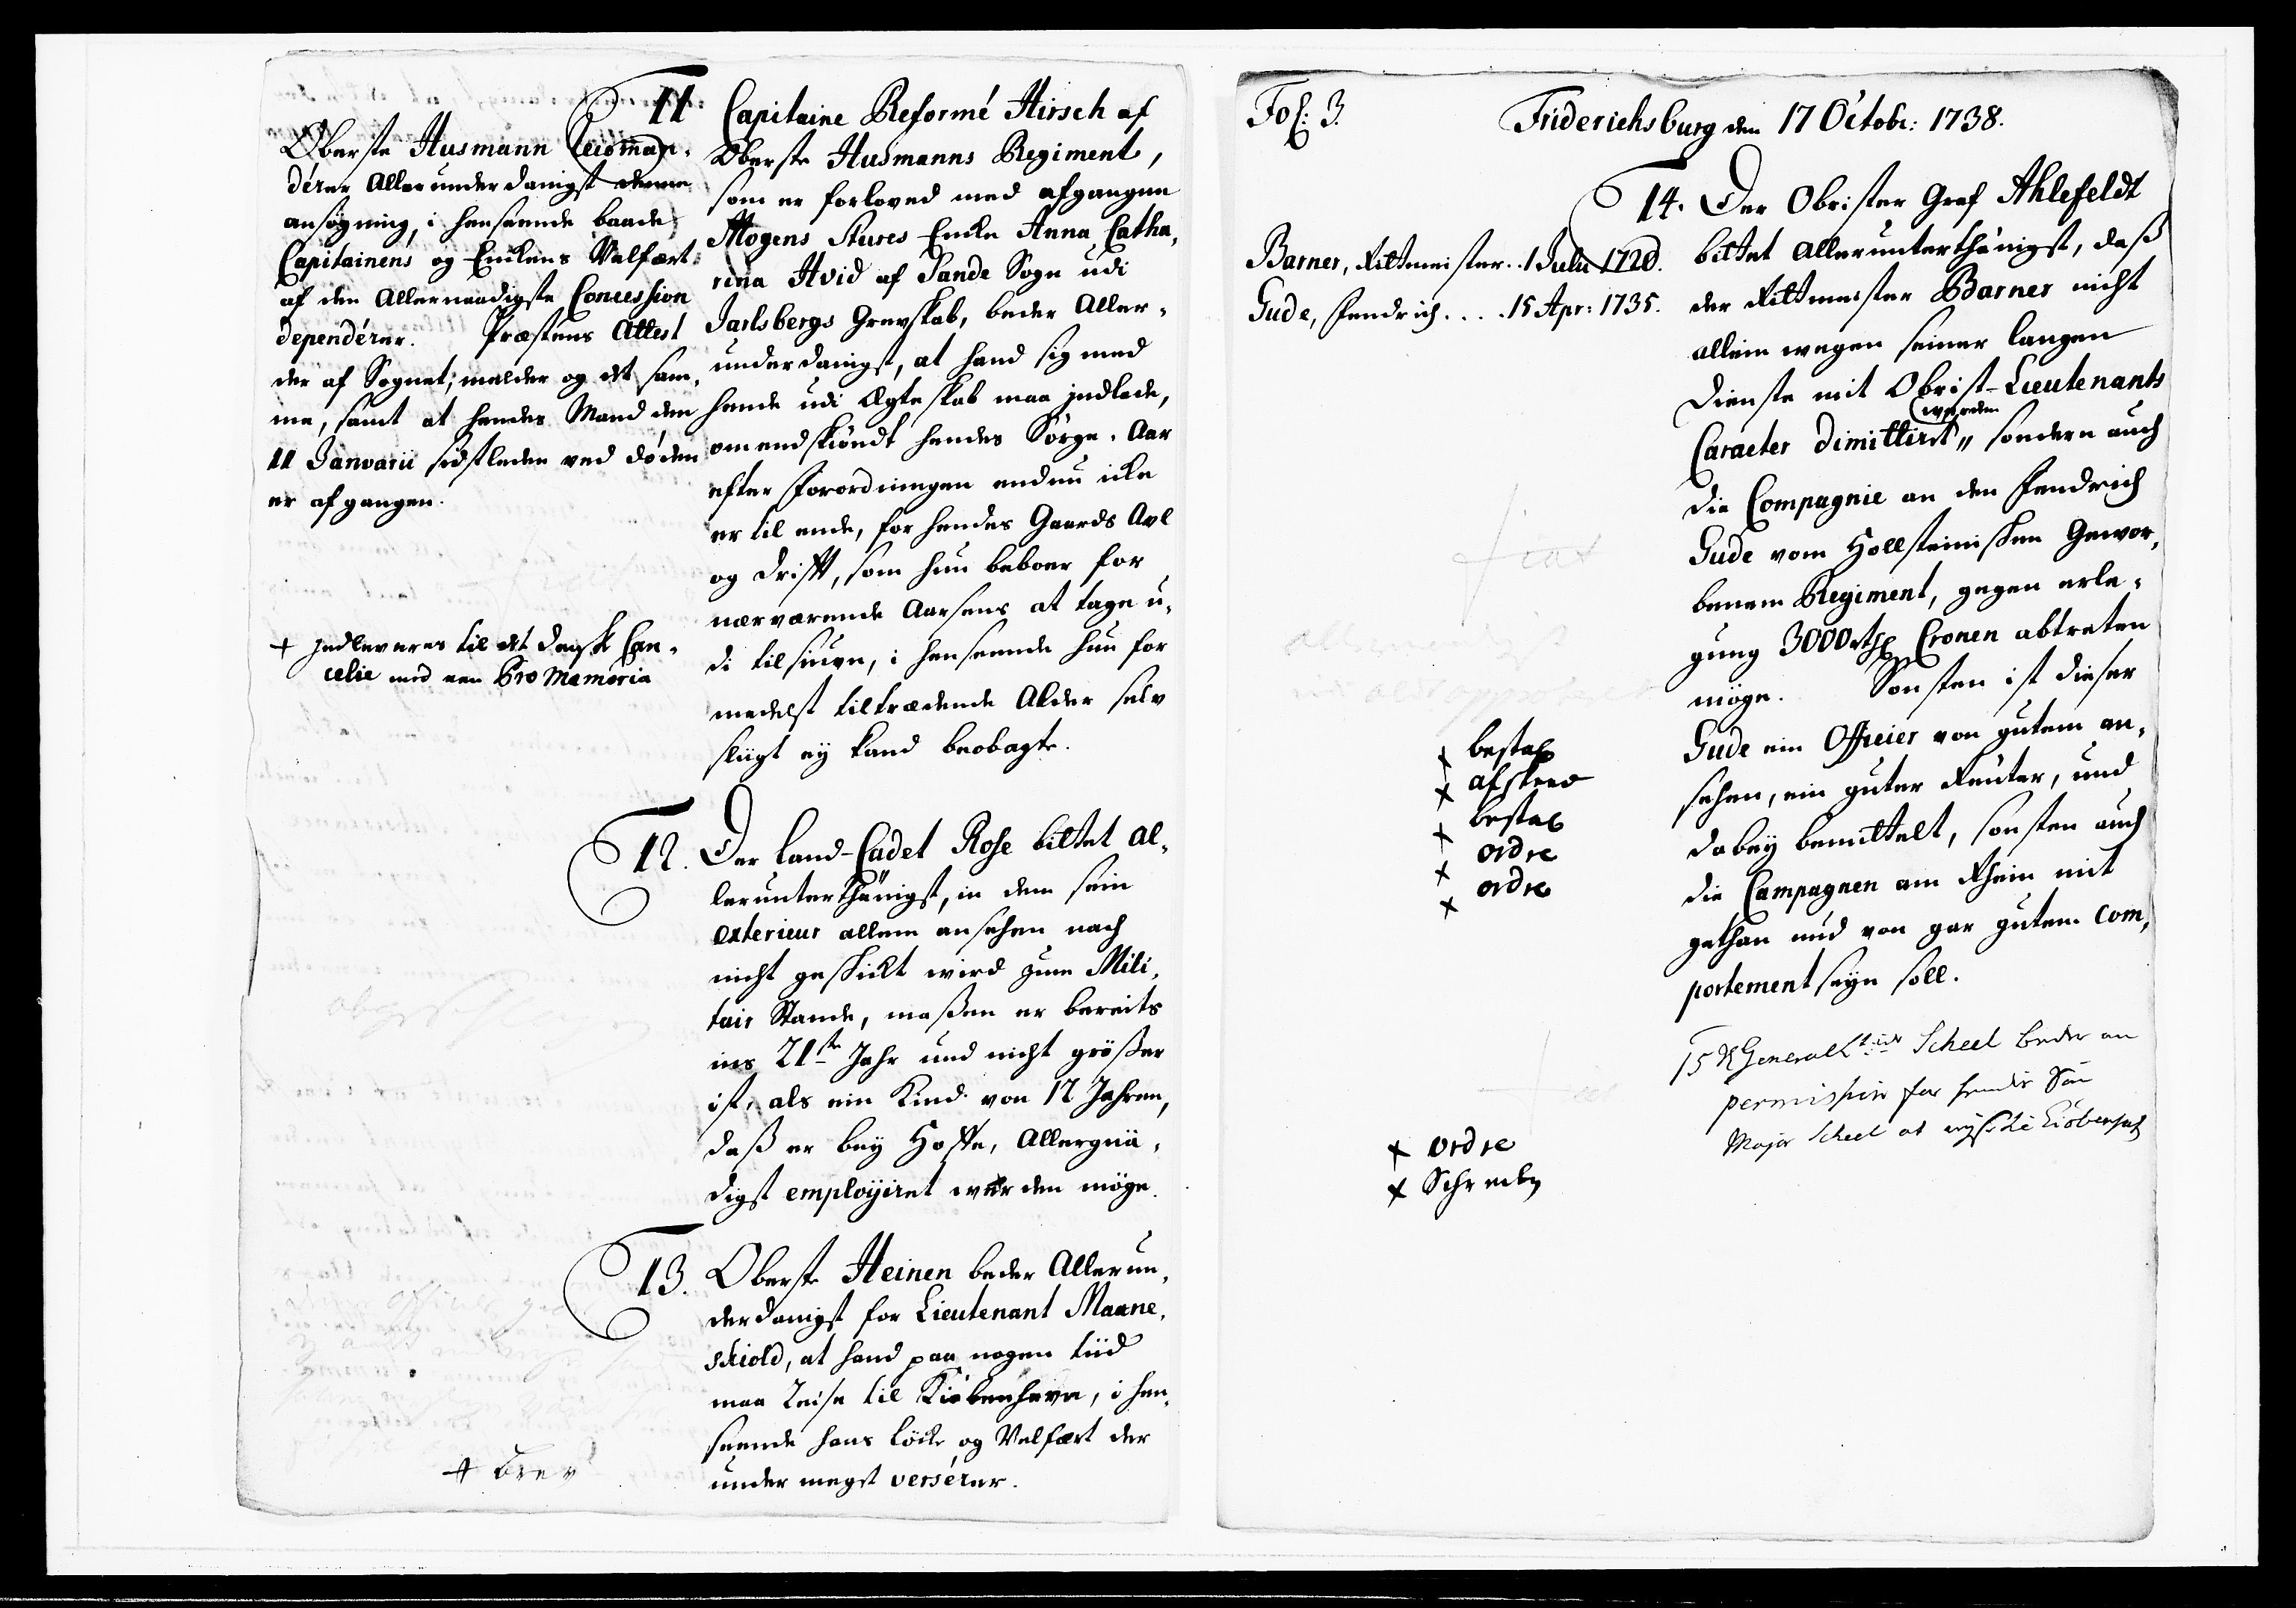 11
Oberste Husmann recomman-
dérer Allerunderdanigst denne
ansøgning, i henseende baade
Capitainens og Enkens Velfært
af den Allernaadigste Concession
dependérer. Præstens Attest
der af Sognet, melder og det sam-
me, samt at hendes Mand den
11 Januarii sidstleden ved døden
er afgangen.
+ Indleveres til det Dansk Can-
celie med een Pro Memoria
Capitaine Reformé Hirsch af
Oberste Husmanns Regiment,
som er forloved med afgangne
Mogens Stures Encke Anna Catha-
rina Hvid af Sande Sogn udi
Jarlsbergs Grevskab, beder Aller-
underdanigst, at hand sig med
hende udi Ægteskab maa indlade,
omendskiøndt hendes Sørge-Aar
efter Forordningen endnu icke
er til ende, for hendes Gaards Avl
og Drifft, som hun beboer for
nærværende Aarsens at tage u-
di tilsiun, i henseende hun for
medelst tiltrædende Alder selv
sligt ey kand beobagte.
12. Der Land-Cadet Rose bittet Al-
lerunterthänigst, in dem sein
exterieur allem ansehen nach
nicht geschickt wird zum Mili-
tair Stande, maßen er bereits
ins 21ste Jahr und nicht größer
ist, als ein Kind von 12 Jahren,
daß er bey Hoffe, Allergnä-
digst employiret werden möge.
13. Oberste Heinen beder Allerun-
derdanigst for Lieutenant Maane-
skiold, at hand paa nogen tiid
maa Reise til Kiøbenhavn, i hen-
seende hans løcke og Velfært der
under megst versérer.
+ brev
Fol: 3.
Friderichsburg den 17 Octobr: 1738.
Barner, Rittmeister. 1 Julii 1720.
Gude, Fendrich . . . . 15 Apr: 1735.
14. Der Obrister Graf Ahlefeldt
bittet Allerunterthänigst, daß
der Rittmeister Barner nicht
allein wegen seiner langen
Dienste mit Obrist-Lieutenants
werden
Caracter dimittirt „ sondern auch
die Compagnie an den Fendrich
Gude vom Hollsteinischen Gewor-
benem Regiment, gegen erle-
gung 3000 rthl Cronen abtreten
möge. Sonsten ist dieser
Gude ein Officier von gutem an-
sehen, ein guter Reuter, und
dabey bemittelt, sonsten auch
die Campagnen am Rhein mit
gethan und von gar gutem com-
portement seyn soll.
fiat
+ bestal
+ afskeed
+ bestal
+ ordre
+ ordre
15 General Scheel beder om
permission for hendes Søn
Major Scheel at reyse til Kiøbenhafn
fiat
+ ordre
+ Schreiben